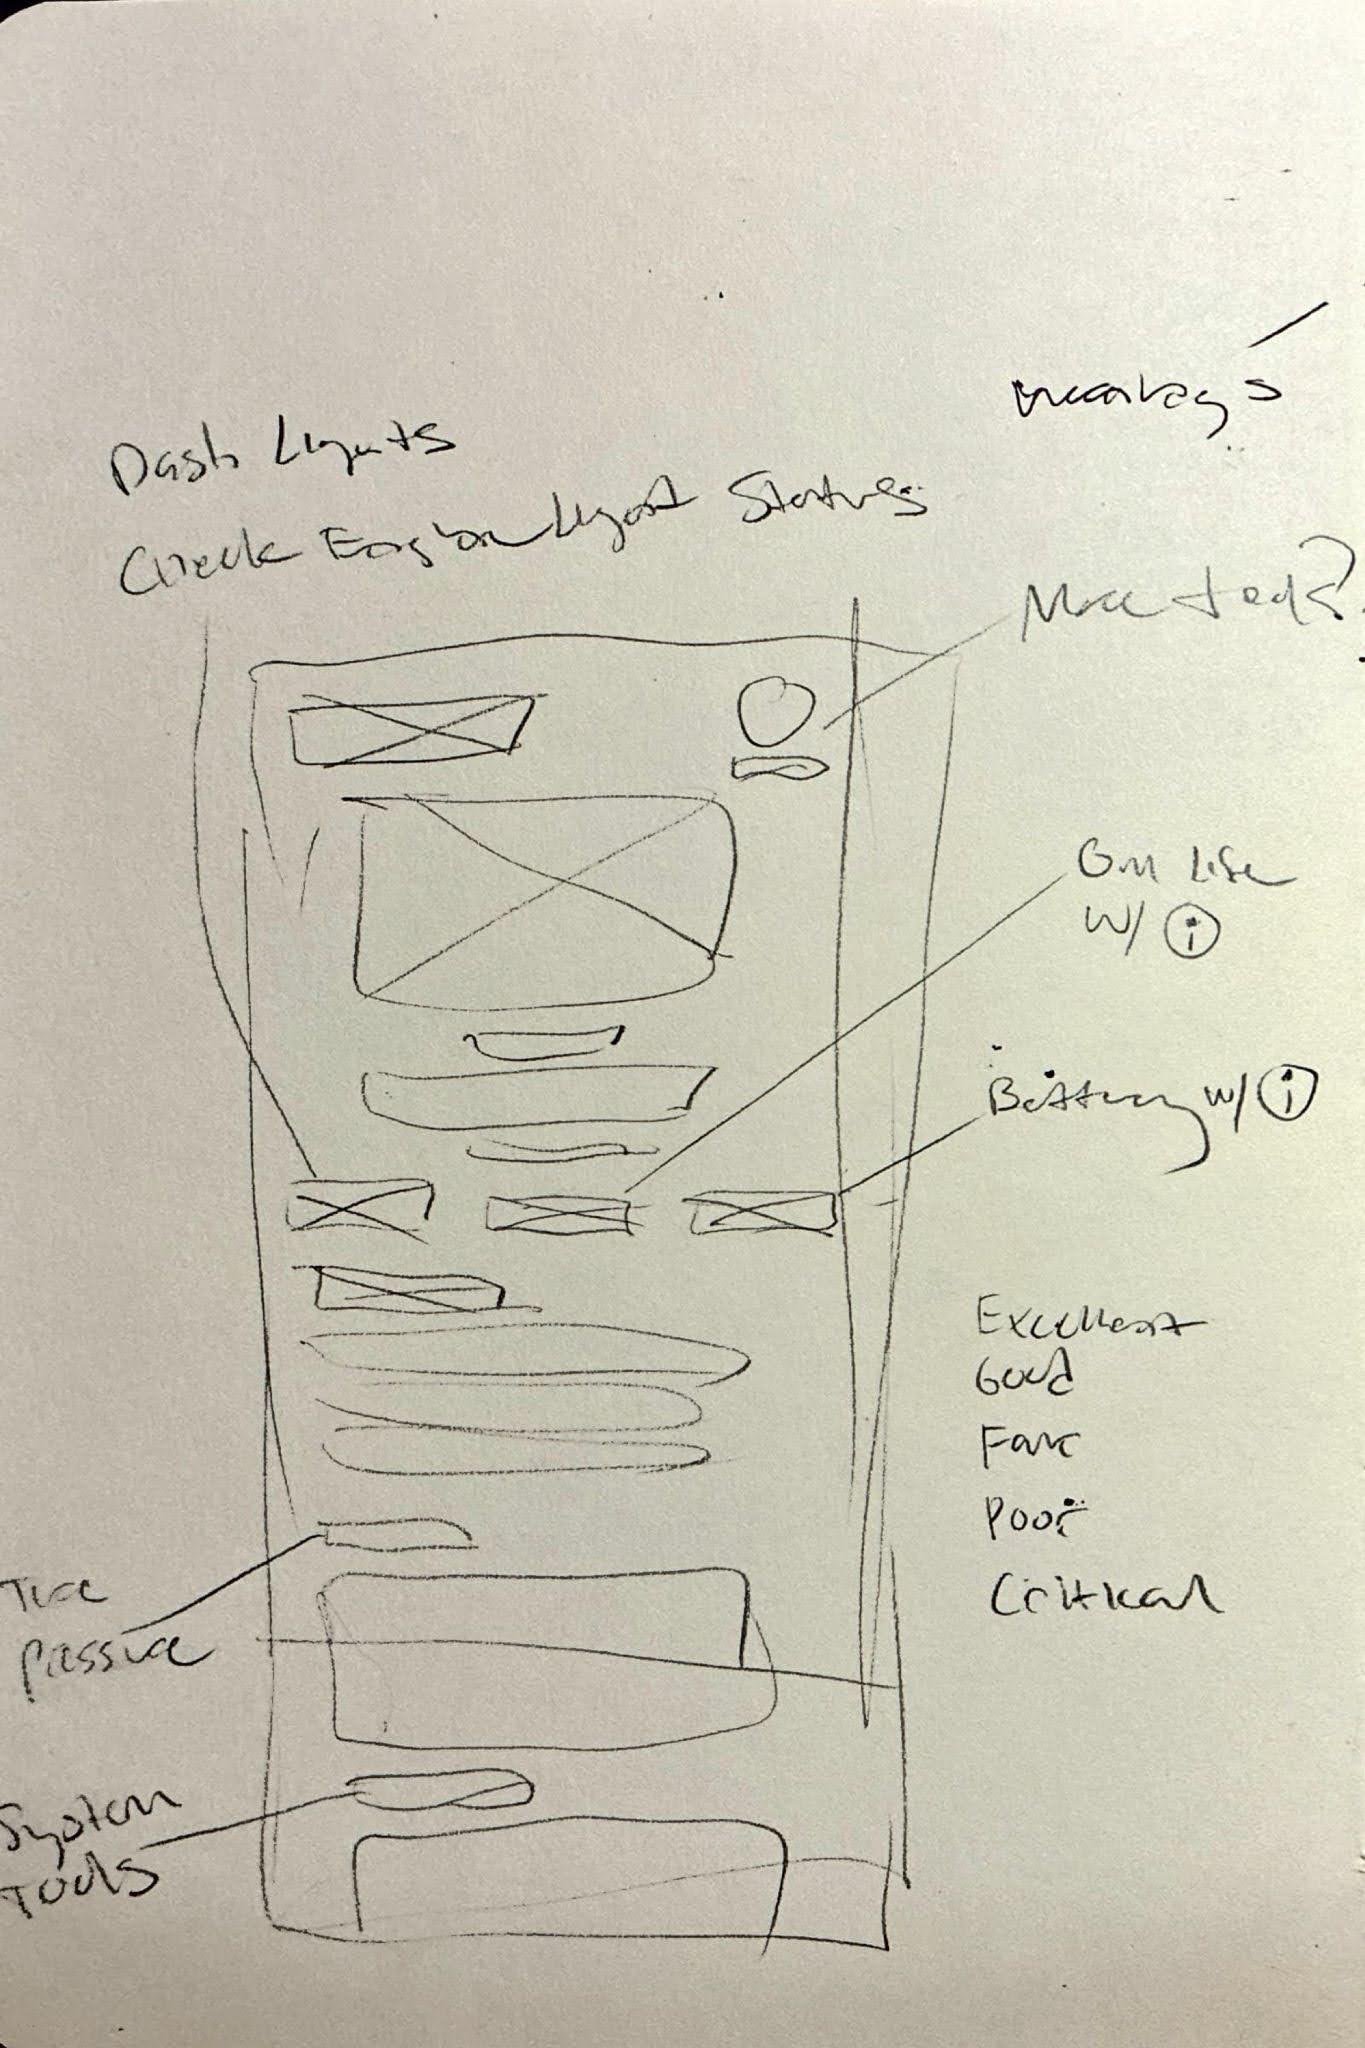 Dash Lights
Check Engine Light Status
More tools?
Oil Life
W/ i
Battery w/ i
Excellent
Good
Fair
Poor
Critical
Tire
Pressure
System
Tools